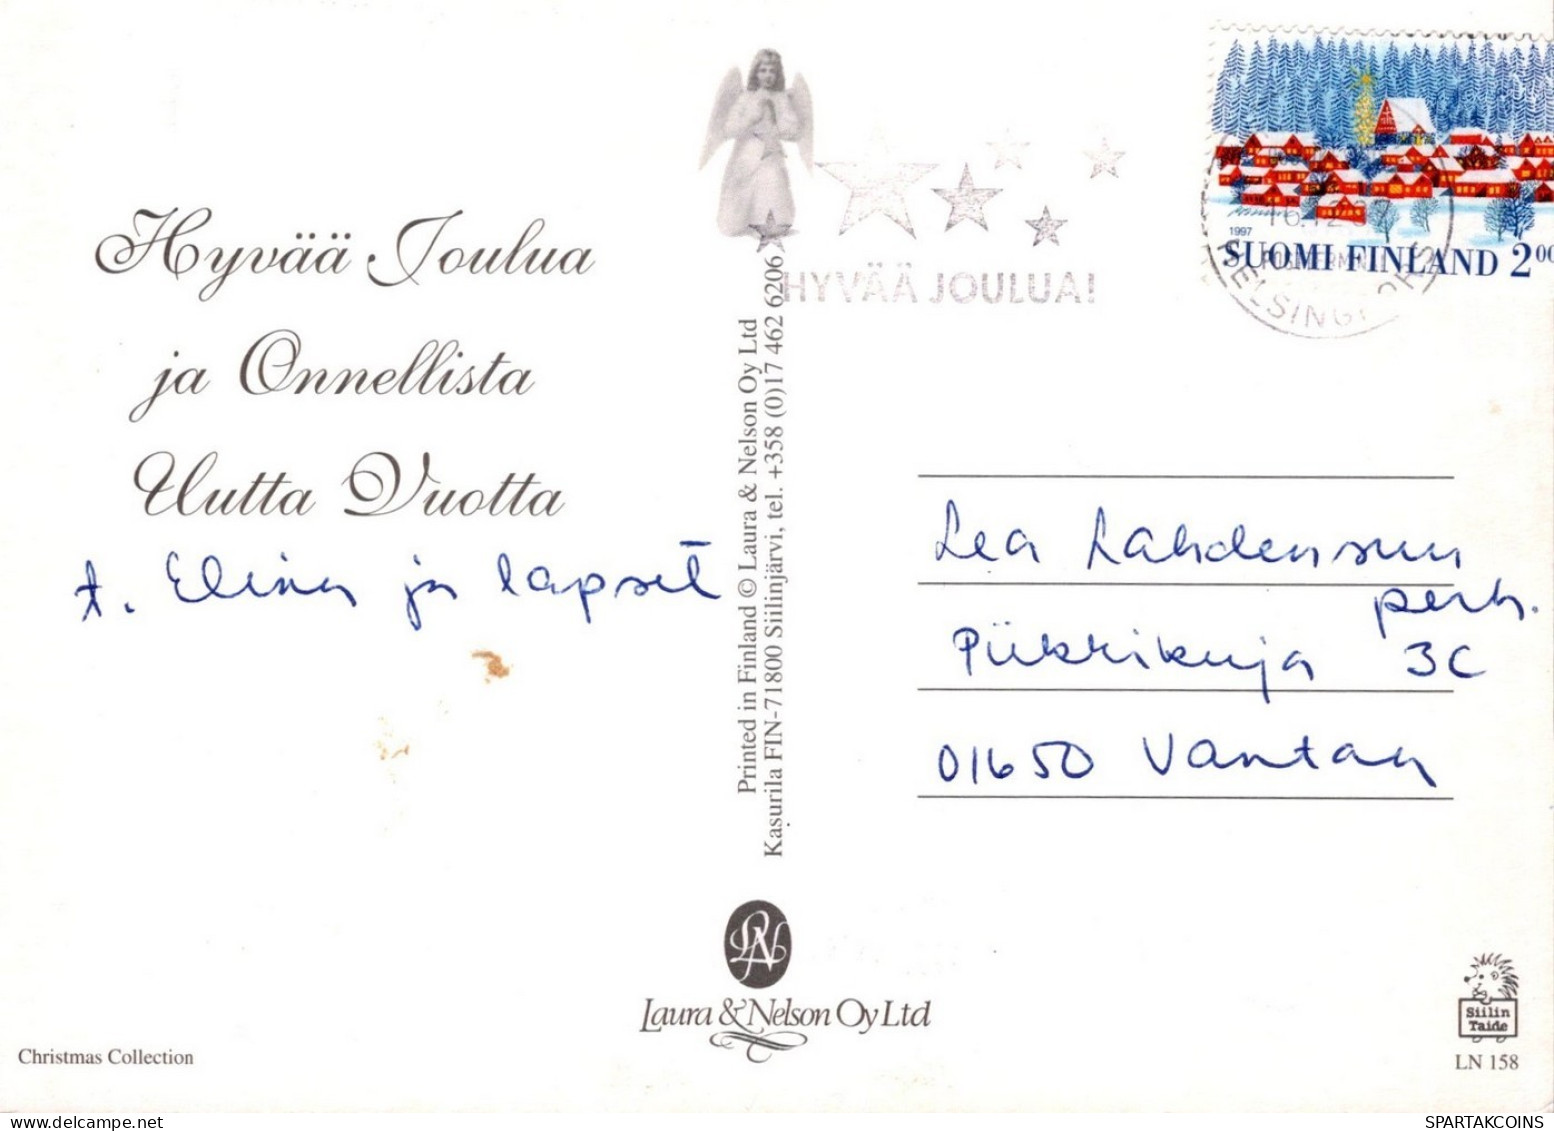 Hyvää Joulua
ja Onnellista
Uutta Vuotta
t. Elina ja lapset
Printed in Finland © Laura & Nelson Oy Ltd
Kasurila FIN-71800 Siilinjärvi, tel. +358 (0)17 462 6206
HYVÄÄ JOULUA!
1997
SUOMI FINLAND 200
Lea Lahdensuun
perh.
Piikkikuja 3C
01650 Vantaa
Laura & Nelson Oy Ltd
Christmas Collection
Siilin
Taide
LN 158
SPARTAKCOINS